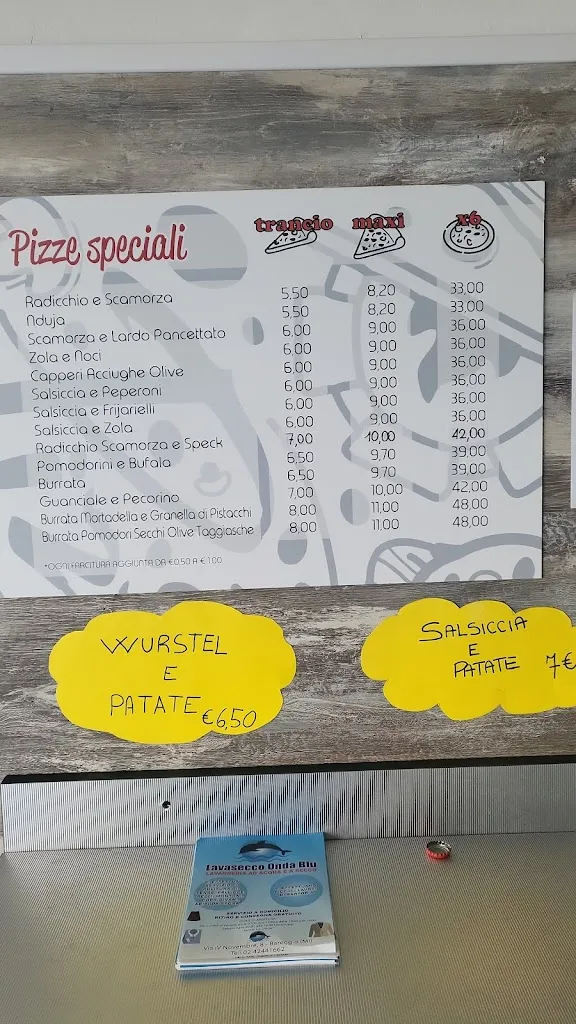 Pizze speciali trancio maxi x6
Radicchio e Scamorza 5,50 8,20 33,00
Nduja 5,50 8,20 33,00
Scamorza e Lardo Pancettato 6,00 9,00 36,00
Zola e Noci 6,00 9,00 36,00
Capperi Acciughe Olive 6,00 9,00 36,00
Salsiccia e Peperoni 6,00 9,00 36,00
Salsiccia e Frijarielli 6,00 9,00 36,00
Salsiccia e Zola 6,00 9,00 36,00
Radicchio Scamorza e Speck 7,00 10,00 42,00
Pomodorini e Bufala 6,50 9,70 39,00
Burrata 6,50 9,70 39,00
Guanciale e Pecorino 7,00 10,00 42,00
Burrata Mortadella e Granella di Pistacchi 8,00 11,00 48,00
Burrata Pomodori Secchi Olive Taggiasche 8,00 11,00 48,00
*OGNI FARCITURA AGGIUNTA DA €0,50 A €1,00
WURSTEL
E
PATATE €6,50
SALSICCIA
E
PATATE 7€
Lavasecco Onda Blu
LAVANDERIA AD ACQUA E A SECCO
SERVIZIO A DOMICILIO
RITIRO E CONSEGNA GRATUITO
Via IV Novembre, 8 - Bareggio (MI)
Tel. 02 42441662